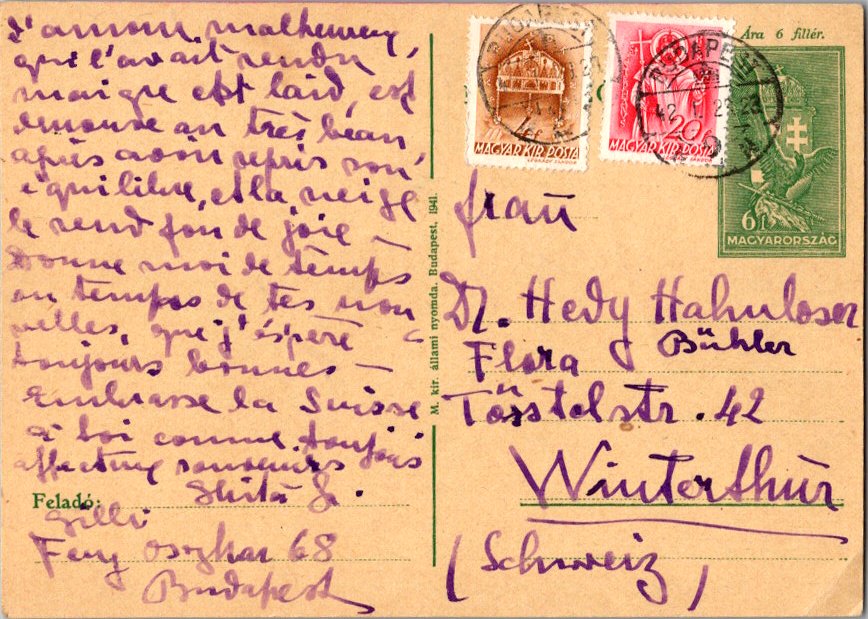 qui l'avait rendu
maigre et laid, est
très beau
après avoir repris son
équilibre, et la neige
le rend fou de joie –
Donne moi de temps
en temps de tes nou
velles, que j'espère
toujours bonnes –
Embrasse la Suisse
à toi comme toujours
affectueux souvenirs
Feladó:
Gilli
68
Budapest
M. kir. állami nyomda. Budapest, 1941.
BUDAPEST
MAGYAR KIR. POSTA
BUDAPEST
20
MAGYAR KIR. POSTA
Ára 6 fillér.
6f
MAGYARORSZÁG
Frau
Dr. Hedy Hahnloser
Bühler
Flora
Tösstalstr. 42
Winterthur
(Schweiz)